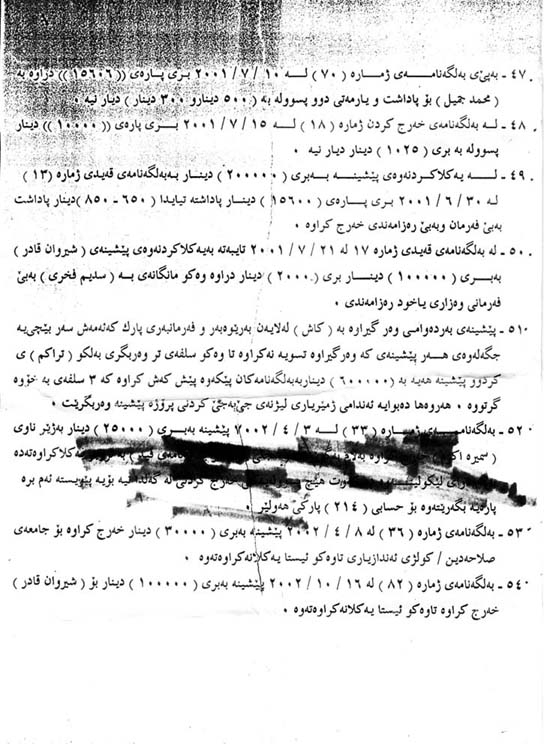 ٤٧ - بەپێی بەلگەنامـــەی ژمارە ( ٧٠ ) لـــە ١٠ / ٧ / ٢٠٠١ بری پارەی (( ١٥٦٠٦ )) دراوە بە
( محمد جمیل ) بۆ پاداشت و یارمەتی دوو پسوولە بە ( ٥٠٠ دینارو ٣٠٠ دینار ) دیار نیە ٠
٤٨ - لـە بەلگەنامەی خەرج کردن ژمارە ( ١٨ ) لـــە ١٥ / ٧ / ٢٠٠١ بـــری پارەی (( ١٠٠٠٠ )) دینار
پسوولە بە بری ( ١٠٢٥ ) دینار دیار نیە ٠
٤٩ - لـــە یـەکلاکردنەوەی پێشینـــە بــەبری ( ٢٠٠٠٠٠ ) دینـار بەبەلگەنامەی قەیدی ژمارە (١٣ )
لـە ٣٠ / ٦ / ٢٠٠١ بری پـــارەی ( ١٥٦٠٠ ) دینار پاداشتە تیایدا ( ٦٥٠ - ٨٥٠ )دینار پاداشت
بەبێ فەرمان وبەبێ رەزامەندی خەرج کراوە ٠
٥٠ - لە بەلگەنامەی قەیدی ژمارە ١٧ لە ٢١ / ٧ / ٢٠٠١ تایبەتە بەیەکلاکردنەوەی پێشینەی ( شیروان قادر )
بەبـــری ( ١٠٠٠٠٠ ) دینـــار بری (٢٠٠٠ ) دینار دراوە وەکو مانگانەی بـە ( سدیم فخری ) بەبێ
فەرمانی وەزاری یاخود رەزامەندی ٠
٥١- پێشینەی بەردەوامی وەر گیراوە بە ( کاش ) لەلایەن بەرێوەبەر و فەرمانبەری پارك کەئەمەش سەر پێچی یـە
جگەلەوەی هـــەر پێشینەی کە وەرگیراوە تسویە نەکراوە تا وەکو سلفەی تر وەربگری بەلکو ( تراکم ) ی
کردوو پێشینە هەیە بە( ٦٠٠٠٠٠ ) دیناربەبەلگەنامەکان پێکەوە پێش کەش کراوە کە ٣ سلفەی بە خۆوە
گرتووە ٠ هەروەها دەبوایە ئەندامی ژمێریاری لیژنەی جێ بەجێ کردنی پرۆژە پێشینە وەربگرێت ٠
٥٢ - بەلگەنامـــەی ژمـــارە ( ٣٣ ) لـــە ٣ / ٤ / ٢٠٠٢ پێشینە بەبـــری ( ٢٥٠٠٠ ) دینار بەژێر ناوی
( سمیرە
پارەیە بگەرێتەوە بۆ حسابی ( ٢١٤ ) پارکی هەولێر ٠
٥٣ - بەلگەنامەی ژمارە ( ٣٦ ) لە ٨ / ٤ / ٢٠٠٢ پێشینە بەبری ( ٣٠٠٠٠ ) دینار خەرج کراوە بۆ جامعەی
صلاحەدین / کولژی ئەندازیاری تاوەکو ئیستا یەکلانەکراوەتەوە ٠
٥٤- بەلگەنامەی ژمارە ( ٨٢ ) لە ١٦ / ١٠ / ٢٠٠٢ پێشینە بەبری ( ١٠٠٠٠٠ ) دینار بۆ ( شیروان قادر )
خەرج کراوە تاوەکو ئیستا یەکلانەکراوەتەوە ٠